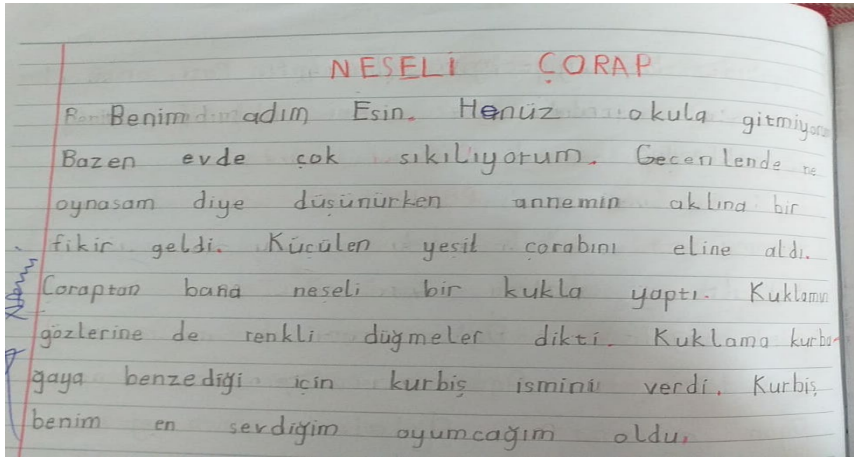 NEŞELİ ÇORAP
Benim adım Esin. Henüz okula gitmiyorum
Bazen evde çok sıkılıyorum. Geçenlende ne
oynasam diye düşünürken annemin aklına bir
fikir geldi. Küçülen yeşil çorabını eline aldı.
Çoraptan bana neşeli bir kukla yaptı. Kuklamın
gözlerine de renkli düğmeler dikti. Kuklama kurba-
ğaya benzediği için kurbiş ismini verdi. Kurbiş
benim en sevdiğim oyumcağım oldu.